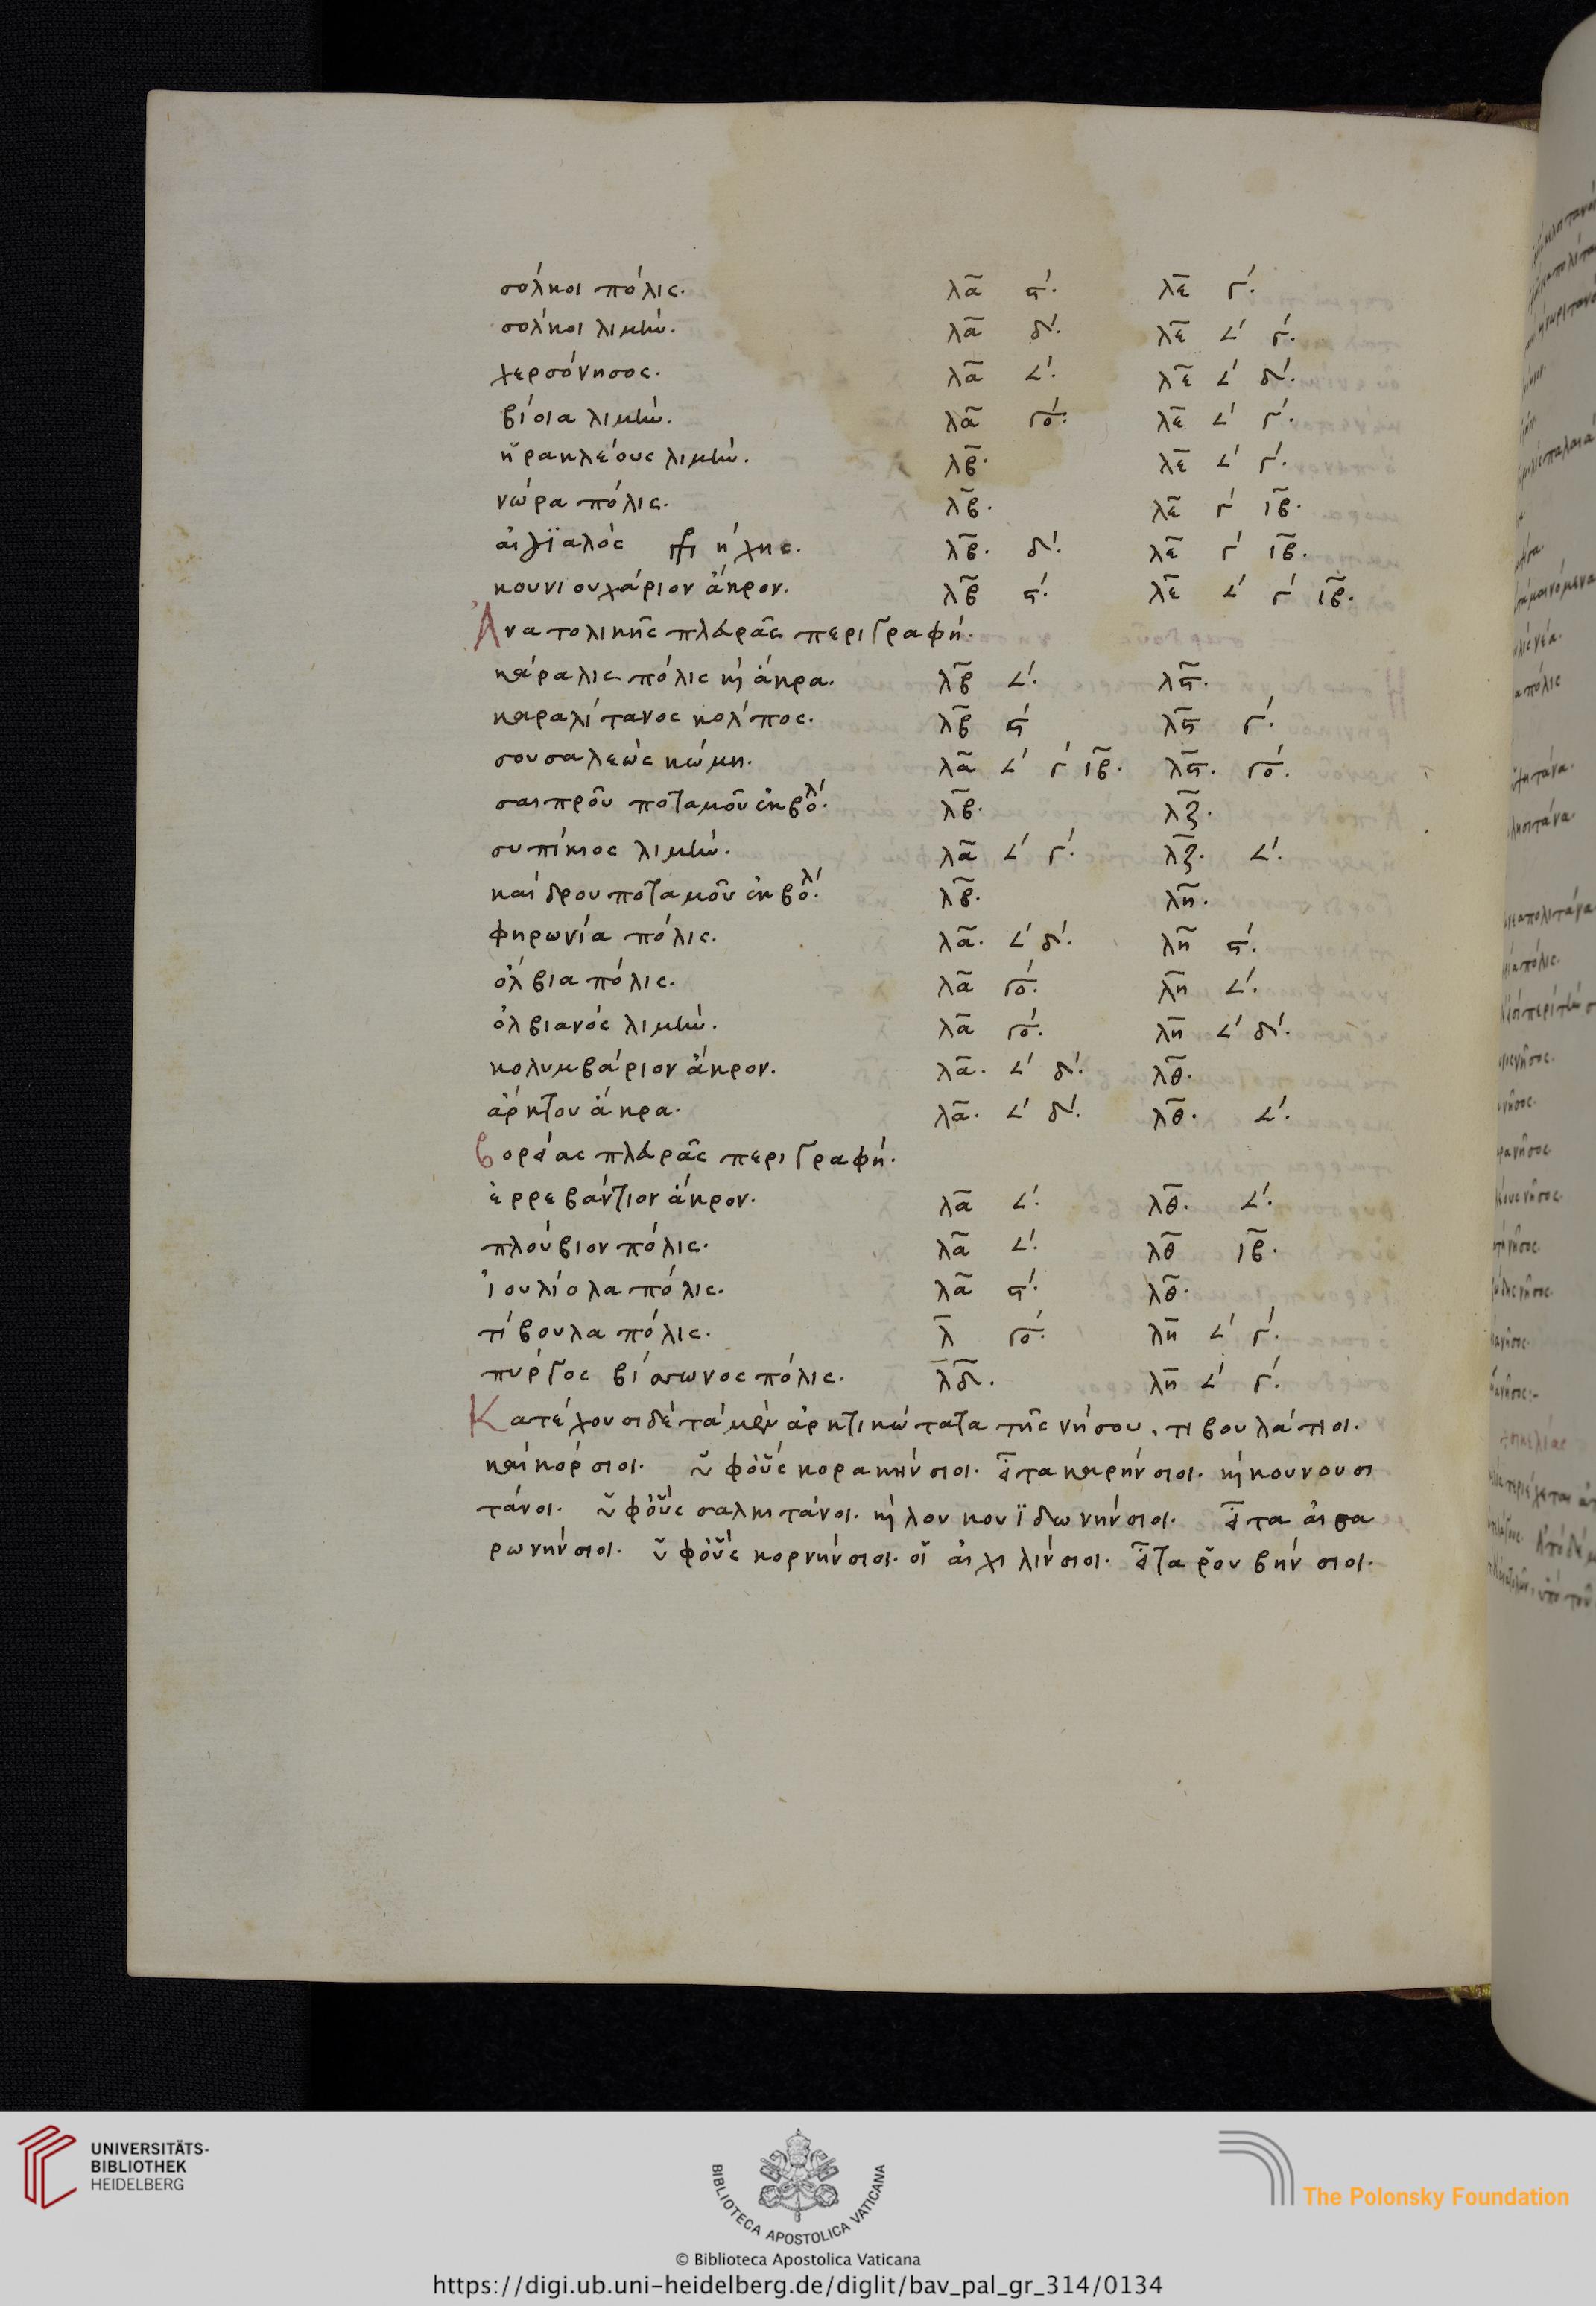 σόλκοι πόλις. λα ϛ΄. λε γ΄.
σόλκοι λιμήν. λα δ΄. λε ∠΄ γ΄.
χερσόνησος. λα ∠΄. λε ∠΄ δ΄.
βίσια λιμήν. λα γο΄. λε ∠΄ γ΄.
ἡρακλέους λιμήν. λβ. λε ∠΄ γ΄.
νώρα πόλις. λβ. λε γ΄ ιβ.
αἰγϊαλός ήχης. λβ. δ΄. λε γ΄ ιβ.
κουνιουχάριον ἄκρον. λβ ϛ΄. λε ∠΄ γ΄ ιβ.
Ἀνατολικῆς πλευρᾶς περιγραφή.
κάραλις πόλις κὶ ἄκρα. λβ ∠΄. λϛ.
καραλίτανος κολπος. λβ ϛ΄ λϛ γ΄.
σουσαλεὼς κώμη. λα ∠΄ γ΄ ιβ. λϛ. γο΄.
σαιπροῦ ποταμοῦ ἐκβολ΄. λβ. λζ.
συπίκιος λιμήν. λα ∠΄ γ΄. λζ. ∠΄.
καίδρου ποταμοῦ ἐκβολ΄. λβ. λη.
φηρωνία πόλις. λα. ∠΄ δ΄. λη ϛ΄.
ὀλβια πόλις. λα γο΄. λη ∠΄.
ὀλβιανός λιμήν. λα γο΄. λη ∠΄ δ΄.
κολυμβάριον ἄκρον. λα. ∠΄ δ΄. λθ.
ἀρκτου ἄκρα. λα. ∠΄ δ΄. λθ. ∠΄.
βορέας πλευρᾶς περιγραφή.
ἐρρεβάντιον ἄκρον. λα ∠΄. λθ. ∠΄.
πλούβιον πόλις. λα ∠΄. λθ ιβ.
ἰουλίολα πόλις. λα ϛ΄. λθ.
τίβουλα πόλις. λ γο΄. λη ∠΄ γ΄.
πύργος βίσωνος πόλις. λδ. λη ∠΄ γ΄.
Κατέχουσι δὲ τὰ μὲν ἀρκτικώτατα τῆς νήσου, τιβουλάτιοι.
καὶ κόρσιοι. ὑφ οὓς κορακήνσιοι. εἶτα καρήνσιοι. κὶ κουνουσι
τάνοι. ὑφ οὓς σαλκιτάνοι. κὶ λουκουϊδωνήνσιοι. εἶτα αἰσα
ρωνήνσιοι. ὑφ οὓς κορνήνσιοι. οἱ αἰχιλίνσιοι. εἶτα ῥουβήνσιοι.
UNIVERSITÄTS-
BIBLIOTHEK
HEIDELBERG
BIBLIOTECA APOSTOLICA VATICANA
The Polonsky Foundation
© Biblioteca Apostolica Vaticana
https://digi.ub.uni-heidelberg.de/diglit/bav_pal_gr_314/0134